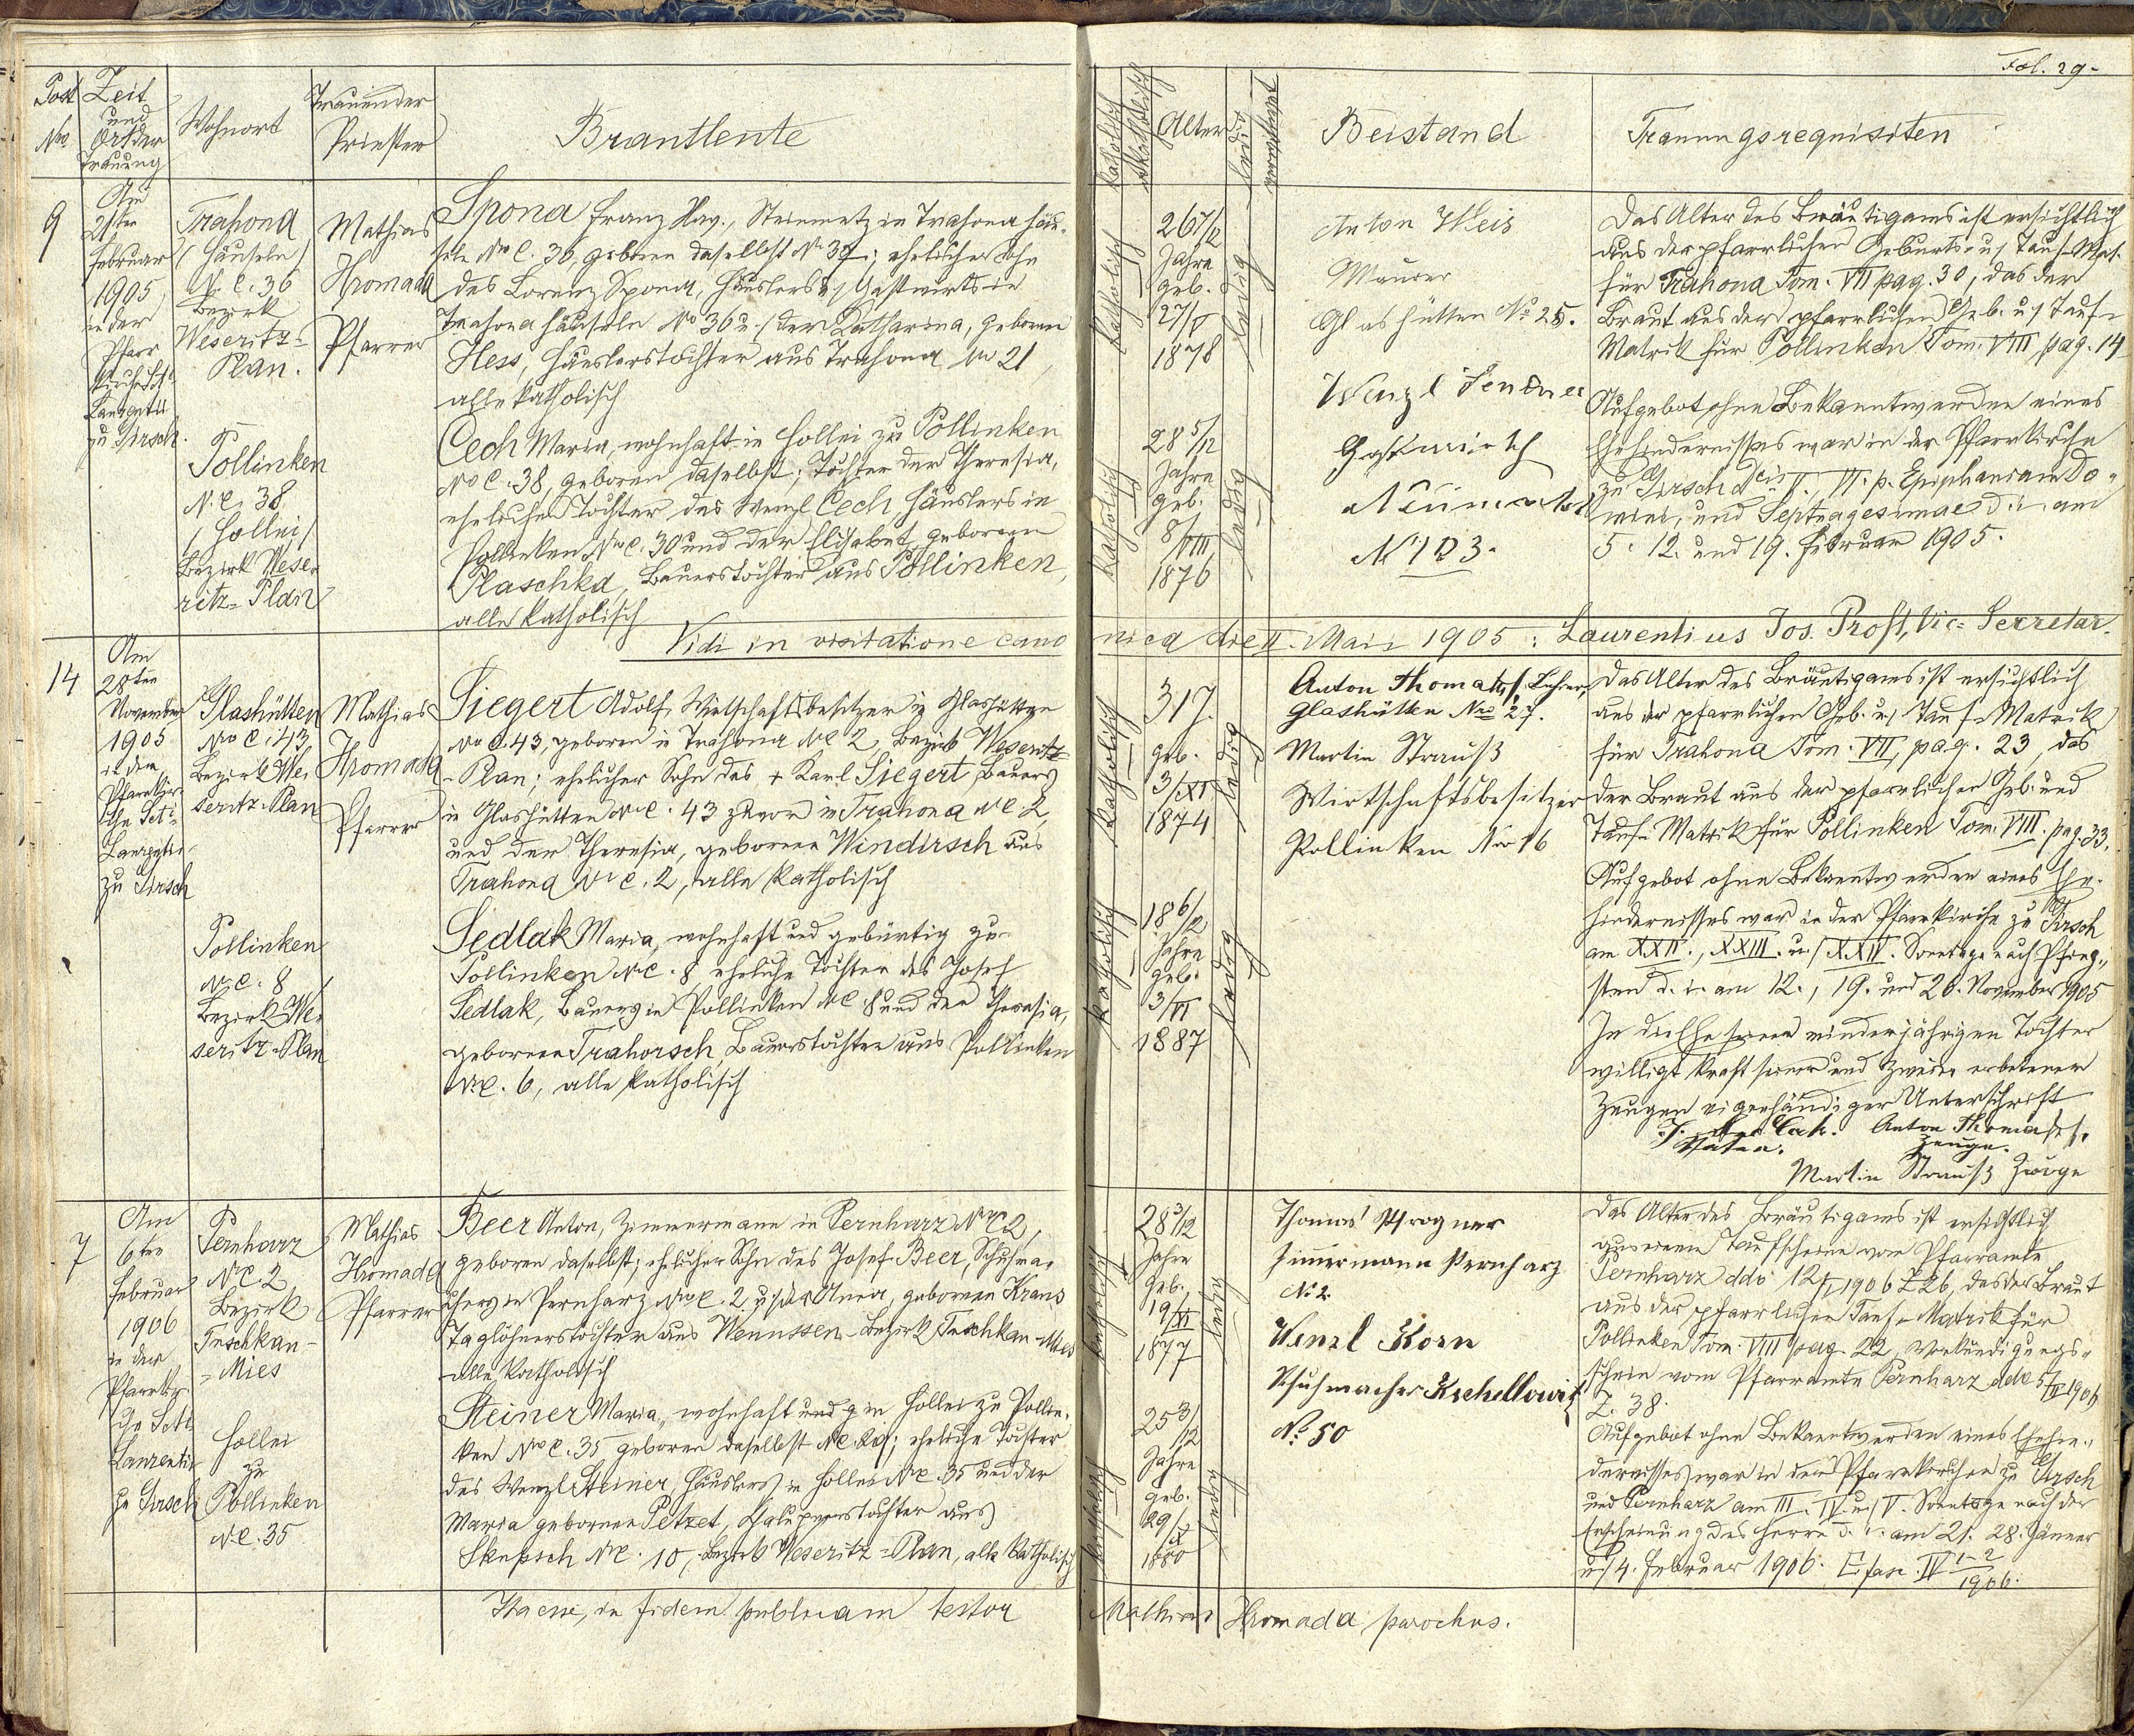 Fol. 29.
Post No.
Zeit und Ort der Trauung
Wohnort
Trauender Priester
Brautleute
katholisch
akatholisch
Alter
ledig
verwittwet
Beistand
Trauungsrequisiten
9
Am
21ten
Februar
1905
in der
Pfarr
kirche Sct.
Laurentii
zu Girsch.
Trahona
(Häuseln)
N. C. 36
Bezirk
Weseritz-
Plan.
Pollinken
N. C. 38
/Hollei/
Bezirk Wese-
ritz-Plan
Mathias
Hromada
Pfarrer
Spona Franz Xav., Steinmetz in Trahona Häu-
seln No C. 36, geboren daselbst No 37; ehelicher Sohn
des Lorenz Spona, Häuslers u. Gastwirts in
Trahona Häuseln No 36 u. der Katharina, geboren
Hess, Häuslerstochter aus Trahona No 21,
alle katholisch
Cech Maria, wohnhaft in Hollei zu Pollinken
No C. 38, geboren daselbst; Tochter der Theresia,
ehelichen Tochter des Wenzl Cech, Häuslers in
Pollinken No C. 30 und der Elisabet geborenen
Plaschka, Bauerstochter aus Pollinken,
alle katholisch
katholisch
26 7/12
Jahre
geb.
27/V
1878
ledig
katholisch
28 5/12
Jahre
geb.
8/VIII
1876
ledig
Anton Weis
Maurer
Glashütten No 25.
Wenzl
Gastwirth
Neumarkt
No 103.
Das Alter des Bräutigams ist ersichtlich
aus der pfarrlichen Geburts- u. Tauf-Mat.
für Trahona Tom. VII pag. 30, das der
Braut aus der pfarrlichen Geb. u. Tauf-
Matrik für Pollinken Tom. VIII pag. 14
Aufgebot ohne Bekanntwerden eines
Ehehindernisses war in der Pfarrkirche
zu Girsch V., VI. p. Epiphaniam Do-
mini, und Septuagesimae d. i. am
5. 12. und 19. Februar 1905.
Vidi in visitatione cano
nica die II. Maii 1905: Laurentius Jos. Proft, Vic. Secretar.
14
Am
28ten
November
1905
in der
Pfarrkir-
che Sct.
Laurentii
zu Girsch
Glashütten
No C. 43
Bezirk We-
seritz-Plan
Pollinken
No C. 8
Bezirk We-
seritz-Plan
Mathias
Hromada
Pfarrer
Siegert Adolf, Wirtschaftsbesitzer in Glashütten
No C. 43, geboren in Trahona NC 2, Bezirk Weseritz
-Plan; ehelicher Sohn des + Karl Siegert, Bauers
in Glashütten NC. 43 zuvor in Trahona NC. 2,
und der Theresia, geborenen Windirsch aus
Trahona NC. 2, alle katholisch
Sedlak Maria, wohnhaft und gebürtig zu
Pollinken NC. 8 eheliche Tochter des Josef
Sedlak, Bauers in Pollinken NC. 8 und der Theresia,
geborenen Trahorsch Bauerstochter aus Pollinken
NC. 6, alle katholisch
katholisch
31 J.
geb.
3/XI
1874
ledig
katholisch
18 6/12
Jahre
geb.
3/VI
1887
ledig
Anton Thomaschl, Lehrer,
Glashütten Nro 27.
Martin Strauß
Wirtschaftsbesitzer
Pollinken Nro 16
Das Alter des Bräutigams ist ersichtlich
aus der pfarrlichen Geb. u. Tauf-Matrik
für Trahona Tom. VII, pag. 23, das
der Braut aus der pfarrlichen Geb. und
Tauf-Matrik für Pollinken Tom. VIII. pag. 33.
Aufgebot ohne Bekanntwerden eines Ehe-
hindernisses war in der Pfarrkirche zu Girsch
am XXII., XXIII. u. XXIV. Sonntage nach Pfing-
sten d. i. am 12., 19. und 26. November 1905
In die Ehe seiner minderjährigen Tochter
willigt kraft seiner und zweier erbetener
Zeugen eigenhändiger Unterschrift
Vater.
Anton Thomaschl.
Zeuge.
Martin Strauß Zeuge
7
Am
6ten
Februar
1906
in der
Pfarrkir-
che Sct.
Laurentii
zu Girsch
Pernharz
N.C. 2
Bezirk
Tuschkau-
-Mies
Hollei
zu
Pollinken
N.C. 35
Mathias
Hromada
Pfarrer
Beer Anton, Zimmermann in Pernharz No C 2,
geboren daselbst; ehelicher Sohn des Josef Beer, Schuhma-
chers in Pernharz No C. 2 u. der Anna, geborenen Kraus
Taglöhnerstochter aus Wenussen-Bezirk Tuschkau-Mies
alle katholisch
Steiner Maria, wohnhaft und g in Hollei zu Pollin-
ken No C. 35 geboren daselbst; eheliche Tochter
des Wenzl Steiner, Häuslers in Hollei NC. 35 und der
Maria geborenen Petzet, Chaluppnerstochter aus
Skupsch NC. 10, Bezirk Weseritz-Plan, alle katholisch
katholisch
28 3/12
Jahre
Geb.
19/XI
1877
ledig
katholisch
25 3/12
Jahre
geb.
29/X
1880
ledig
Thomas Pfrogner
Zimmermann Pernharz
No 2.
Wenzl Korn
Schuhmacher Kschellowitz
No. 50
Das Alter des Bräutigams ist ersichtlich
aus einem Taufscheine vom Pfarramte
Pernharz ddo 12/I 1906 Z 26, das der Braut
aus der pfarrlichen Tauf-Matrik für
Pollinken Tom. VIII pag. 22, Verkündigungs-
schein vom Pfarramte Pernharz ddo 5/II 1906
Z. 38.
Aufgebot ohne Bekanntwerden eines Ehehin-
dernisses war in den Pfarrkirchen zu Girsch
und Pernharz am III. IV. u. V. Sonntage nach der
Erscheinung des Herrn d. i. am 21. 28. Jänner
u. 4. Februar 1906. fasc. IV 1-2/1906.
Ita esse, in fidem publicam testor
Mathias Hromada parochus.